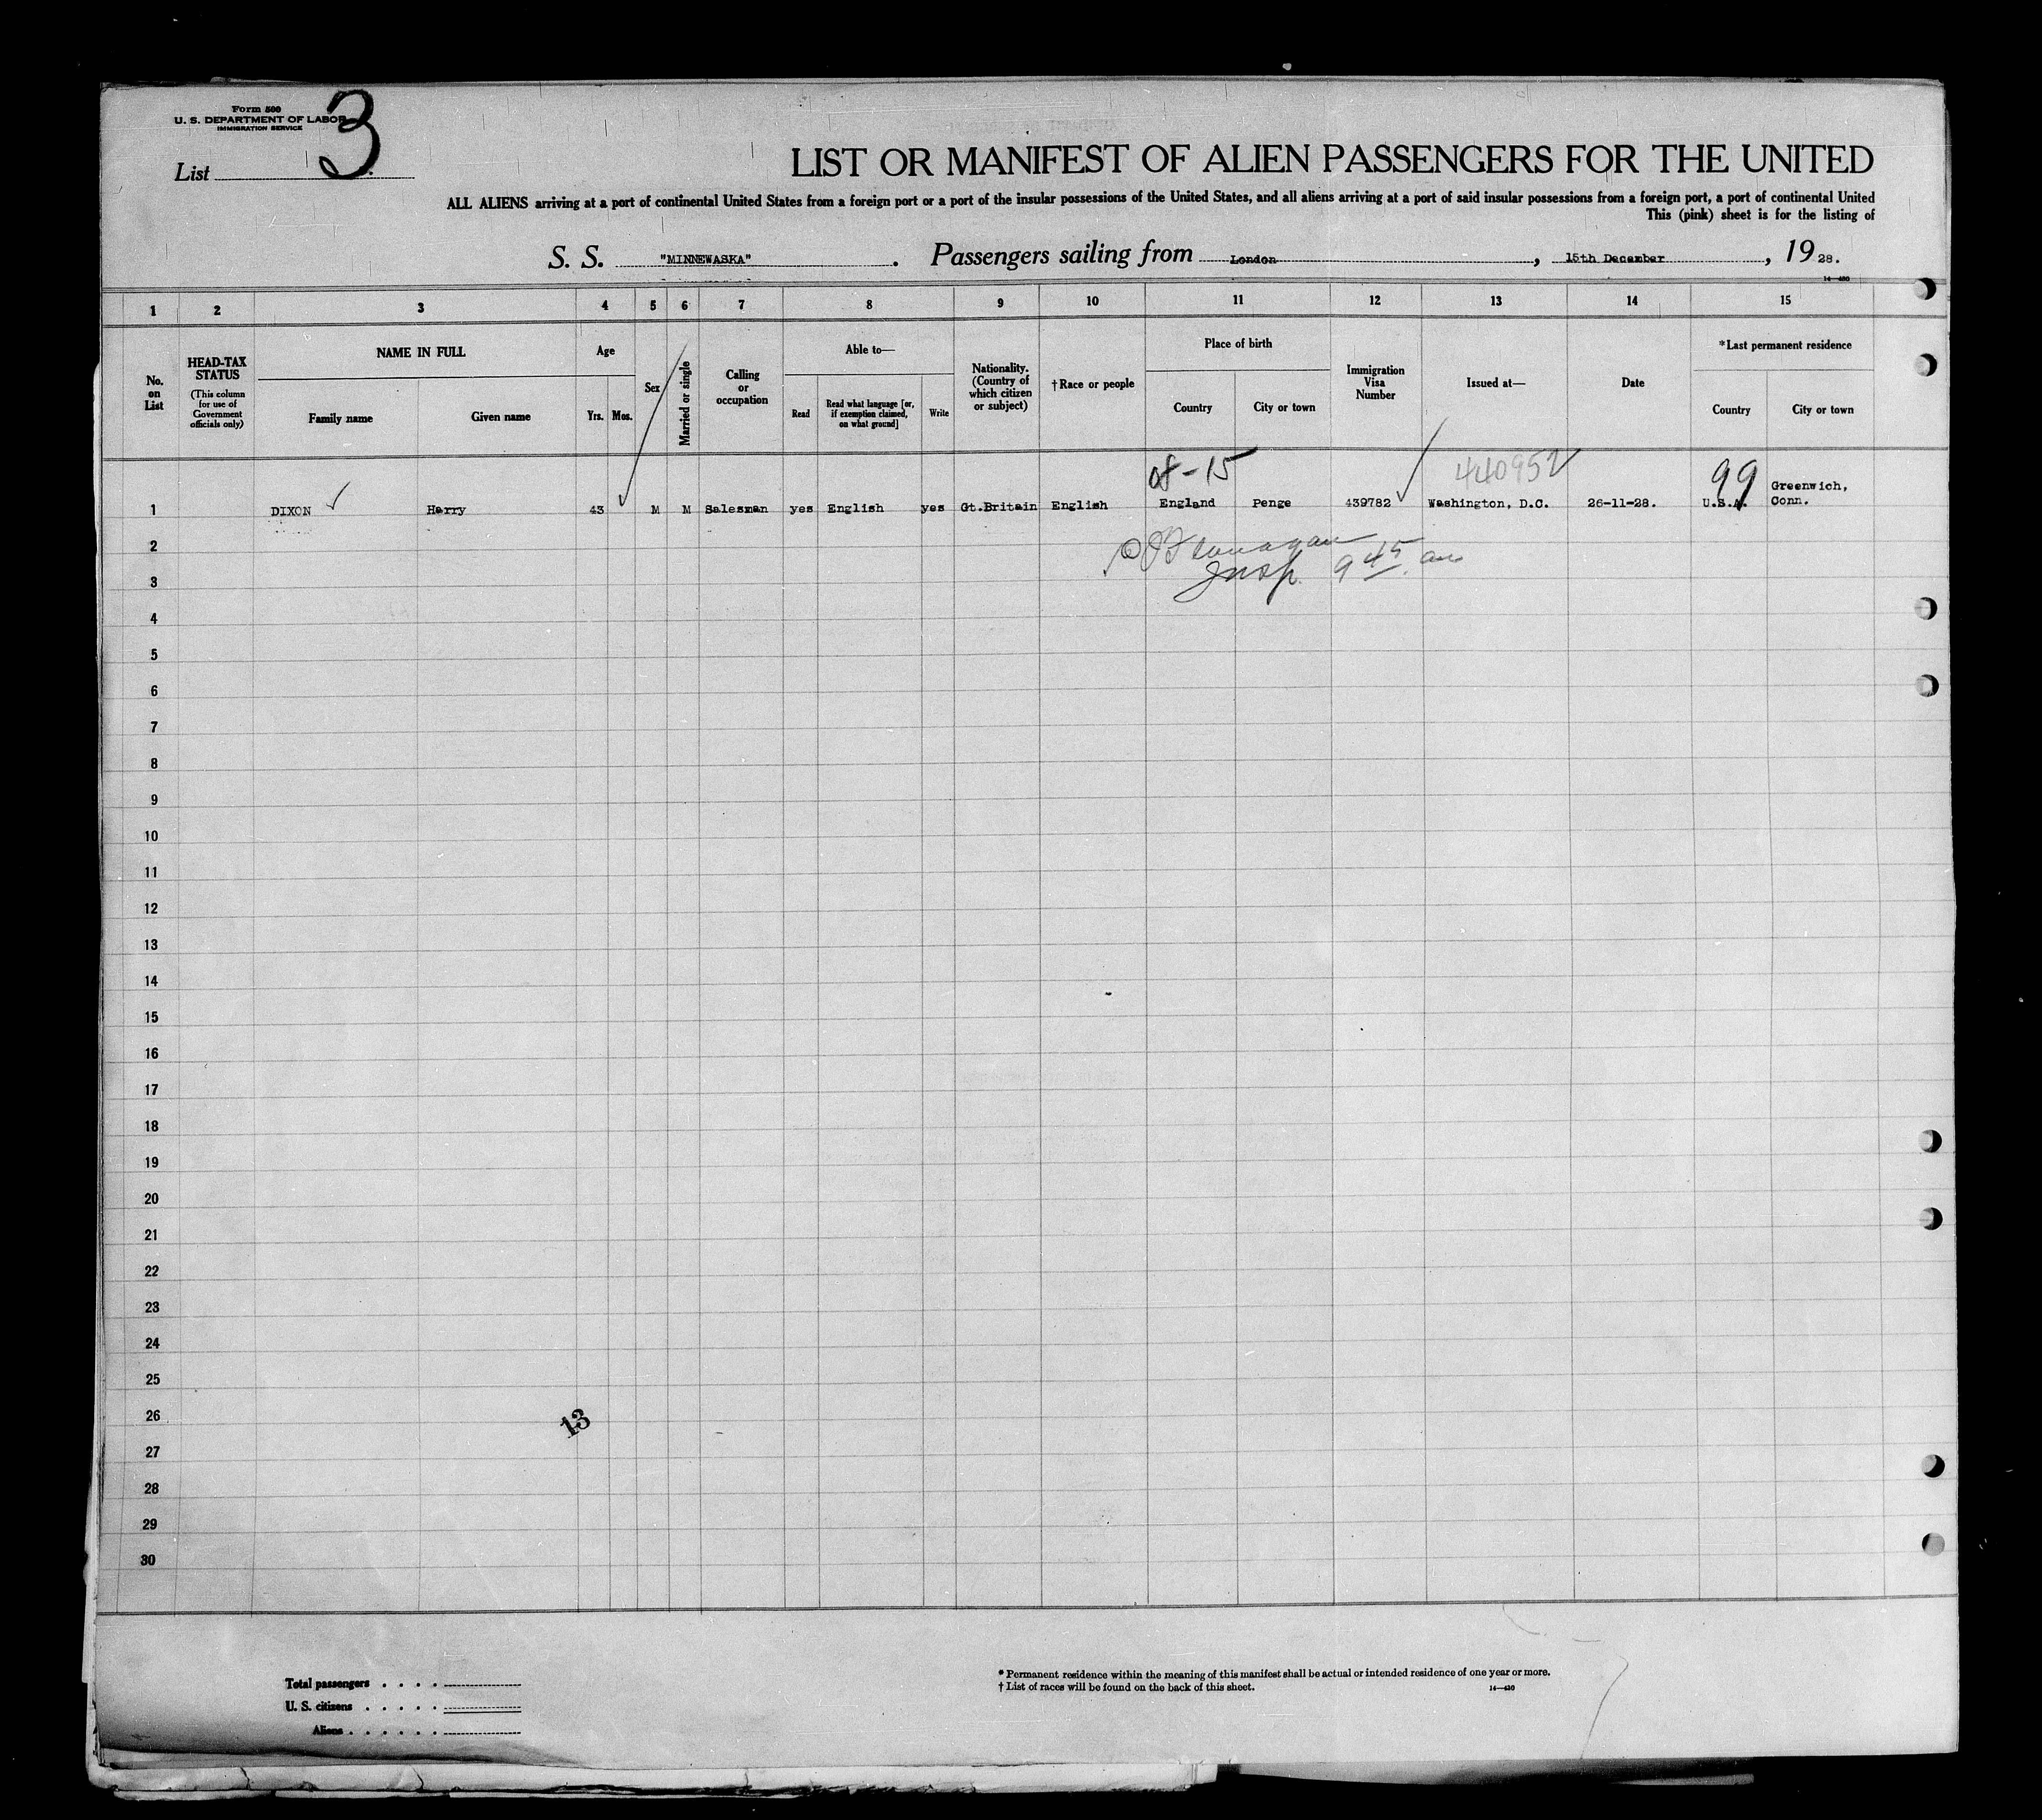 Form 500
U. S. DEPARTMENT OF LABOR
IMMIGRATION SERVICE
List 3
LIST OR MANIFEST OF ALIEN PASSENGERS FOR THE UNITED
ALL ALIENS arriving at a port of continental United States from a foreign port or a port of the insular possessions of the United States, and all aliens arriving at a port of said insular possessions from a foreign port, a port of continental United
This (pink) sheet is for the listing of
S. S. "MINNEWASKA". Passengers sailing from London, 15th December, 1928.
14—430
1 2 3 4 5 6 7 8 9 10 11 12 13 14 15
No. on List
HEAD-TAX STATUS
(This column for use of Government officials only)
NAME IN FULL
Family name
Given name
Age
Yrs.
Mos.
Sex
Married or single
Calling or occupation
Able to—
Read
Read what language [or, if exemption claimed, on what ground]
Write
Nationality. (Country of which citizen or subject)
†Race or people
Place of birth
Country
City or town
Immigration Visa Number
Issued at—
Date
*Last permanent residence
Country
City or town
08-15 440952 99
1 DIXON Harry 43 M M Salesman yes English yes Gt.Britain English England Penge 439782 Washington, D.C. 26-11-28. U.S.A. Greenwich, Conn.
2
Insp. 9 45 am
3
4
5
6
7
8
9
10
11
12
13
14
15
16
17
18
19
20
21
22
23
24
25
26
13
27
28
29
30
Total passengers . . . .
U. S. citizens . . . . .
Aliens . . . . . .
* Permanent residence within the meaning of this manifest shall be actual or intended residence of one year or more.
† List of races will be found on the back of this sheet.
14—430